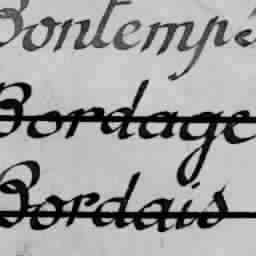 Bontemps
Bordage
Bordais